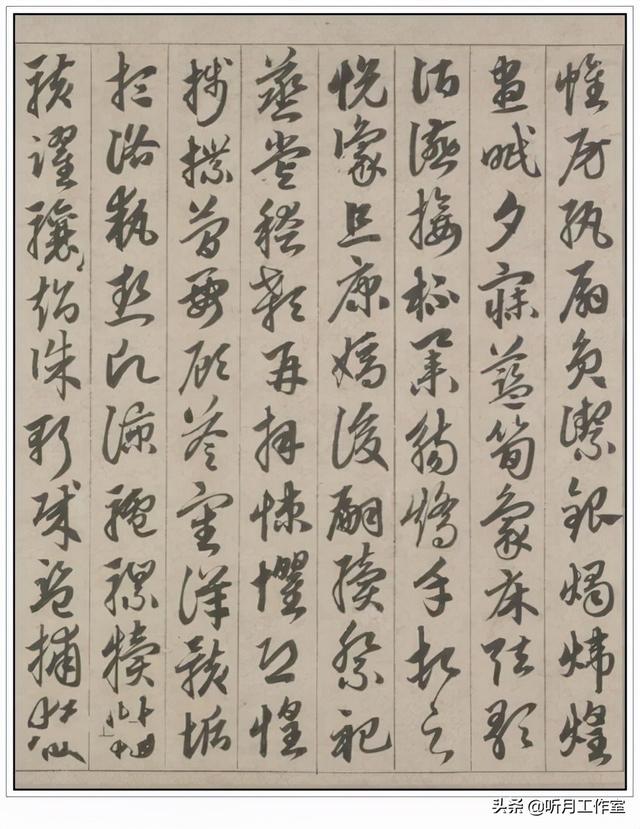 帷房紈扇員潔銀燭煒煌
晝眠夕寐藍筍象床弦歌
酒讌接杯舉觴矯手頓足
悅豫且康嫡後嗣續祭祀
蒸嘗稽顙再拜悚懼恐惶
牋牒簡要顧答審詳骸垢
想浴執熱願涼驢騾犢
駭躍驤超誅斬賊盜捕
头条 @听月工作室